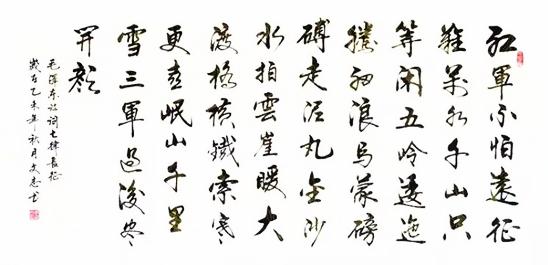 红軍不怕遠征
難萬水千山只
等闲五岭逶迤
腾細浪烏蒙磅
礴走泥丸金沙
水拍雲崖暖大
渡橋横鐵索寒
更喜岷山千里
雪三軍過後尽
開颜
毛澤东诗词七律長征
歲在乙未年秋月文志书